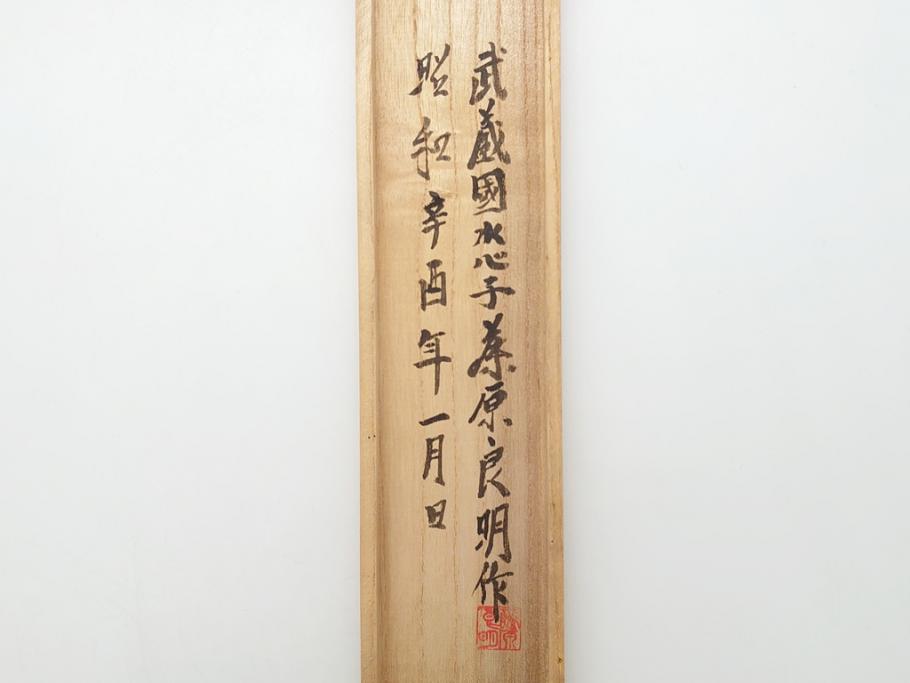 武蔵國水心子藤原良明作
昭和辛酉年一月日